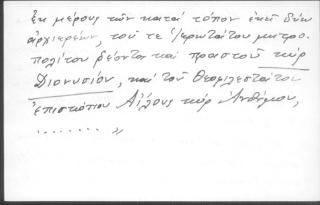 ἐκ μέρους τῶν κατά τόπον ἐκεῖ δύω
ἀρχιερέων, τοῦ τε ἱερωτάτου μητρο-
πολίτου δέοντος καί προεστοῦ κύρ
Διονυσίου, καί τοῦ Θεοφιλεστάτου
ἐπισκόπου Αἴλους κύρ Ἀνθίμου,
........ »